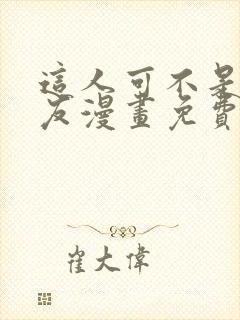 這人可不是
友漫畫免費
崔大偉